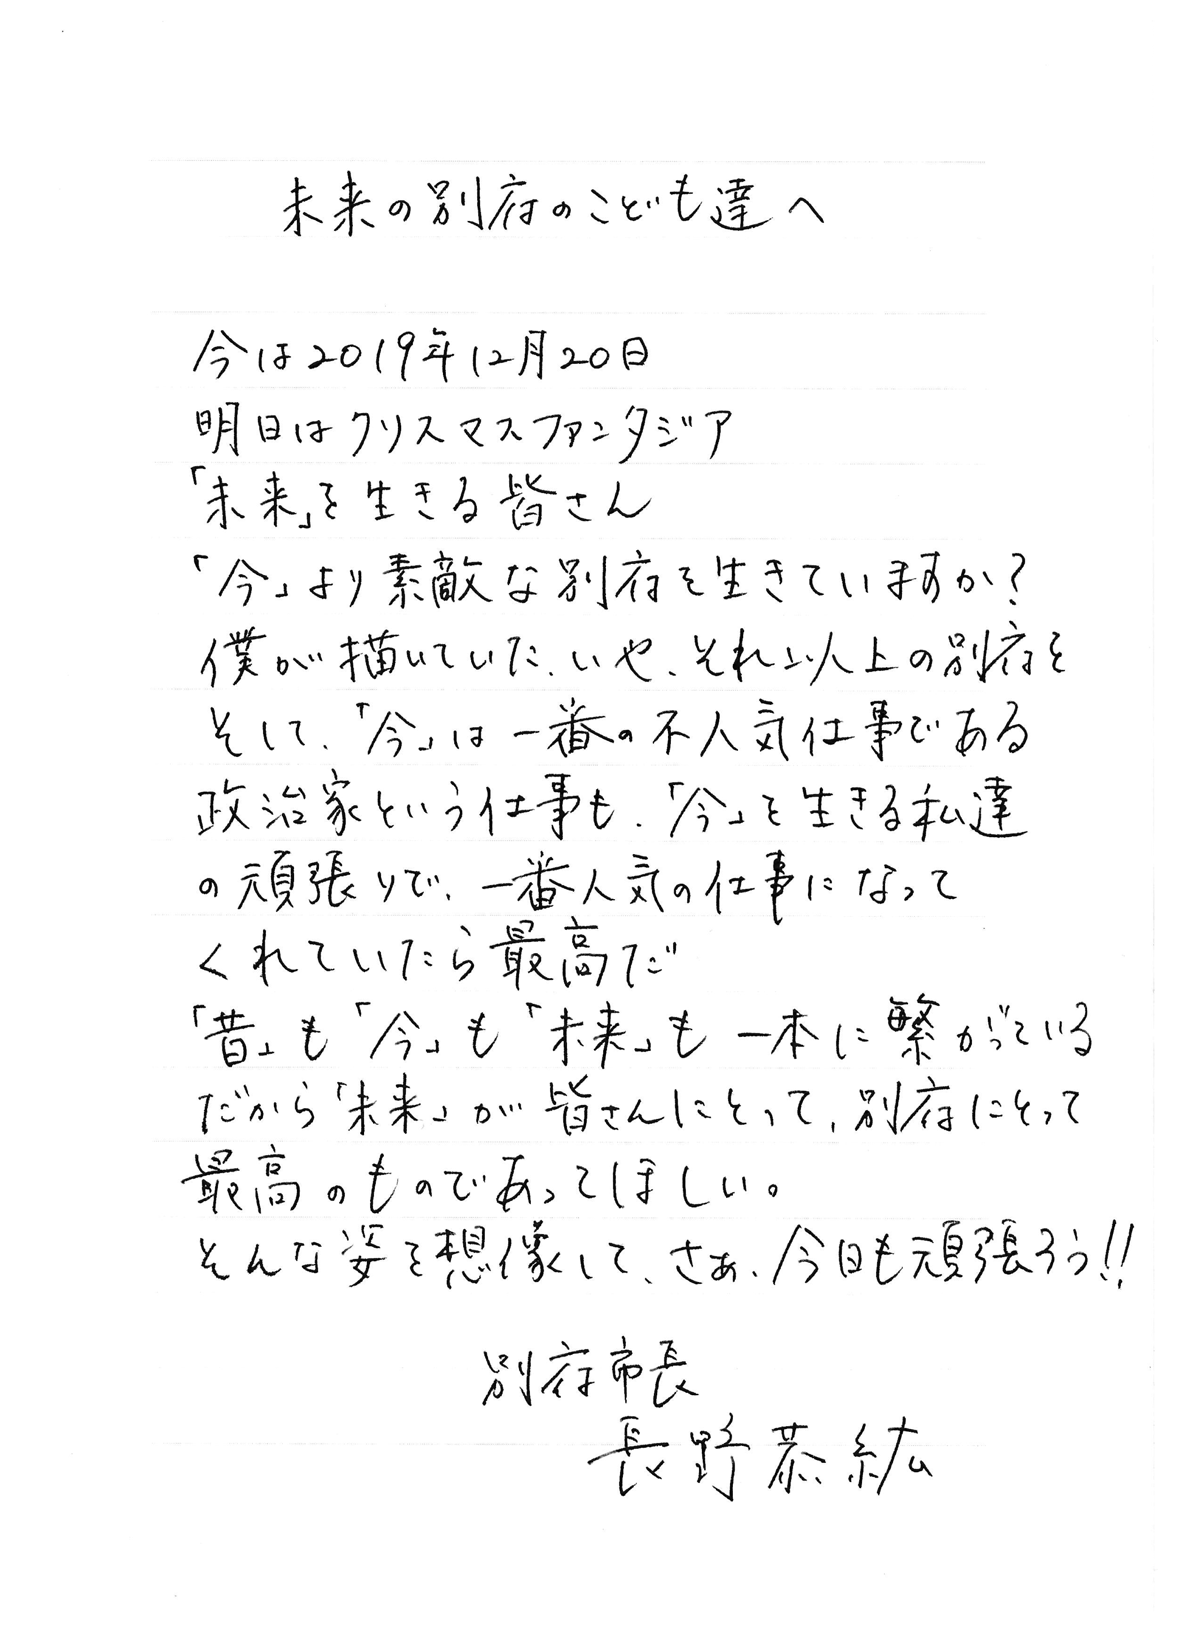 未来の別府のこども達へ
今は2019年12月20日
明日はクリスマスファンタジア
「未来」を生きる皆さん
「今」より素敵な別府を生きていますか?
僕が描いていた、いや、それ以上の別府を
そして、「今」は一番の不人気仕事である
政治家という仕事も、「今」を生きる私達
の頑張りで、一番人気の仕事になって
くれていたら最高だ
「昔」も「今」も「未来」も一本に繋がっている
だから「未来」が皆さんにとって、別府にとって
最高のものであってほしい。
そんな姿を想像して、さぁ、今日も頑張ろう!!
別府市長
長野恭紘